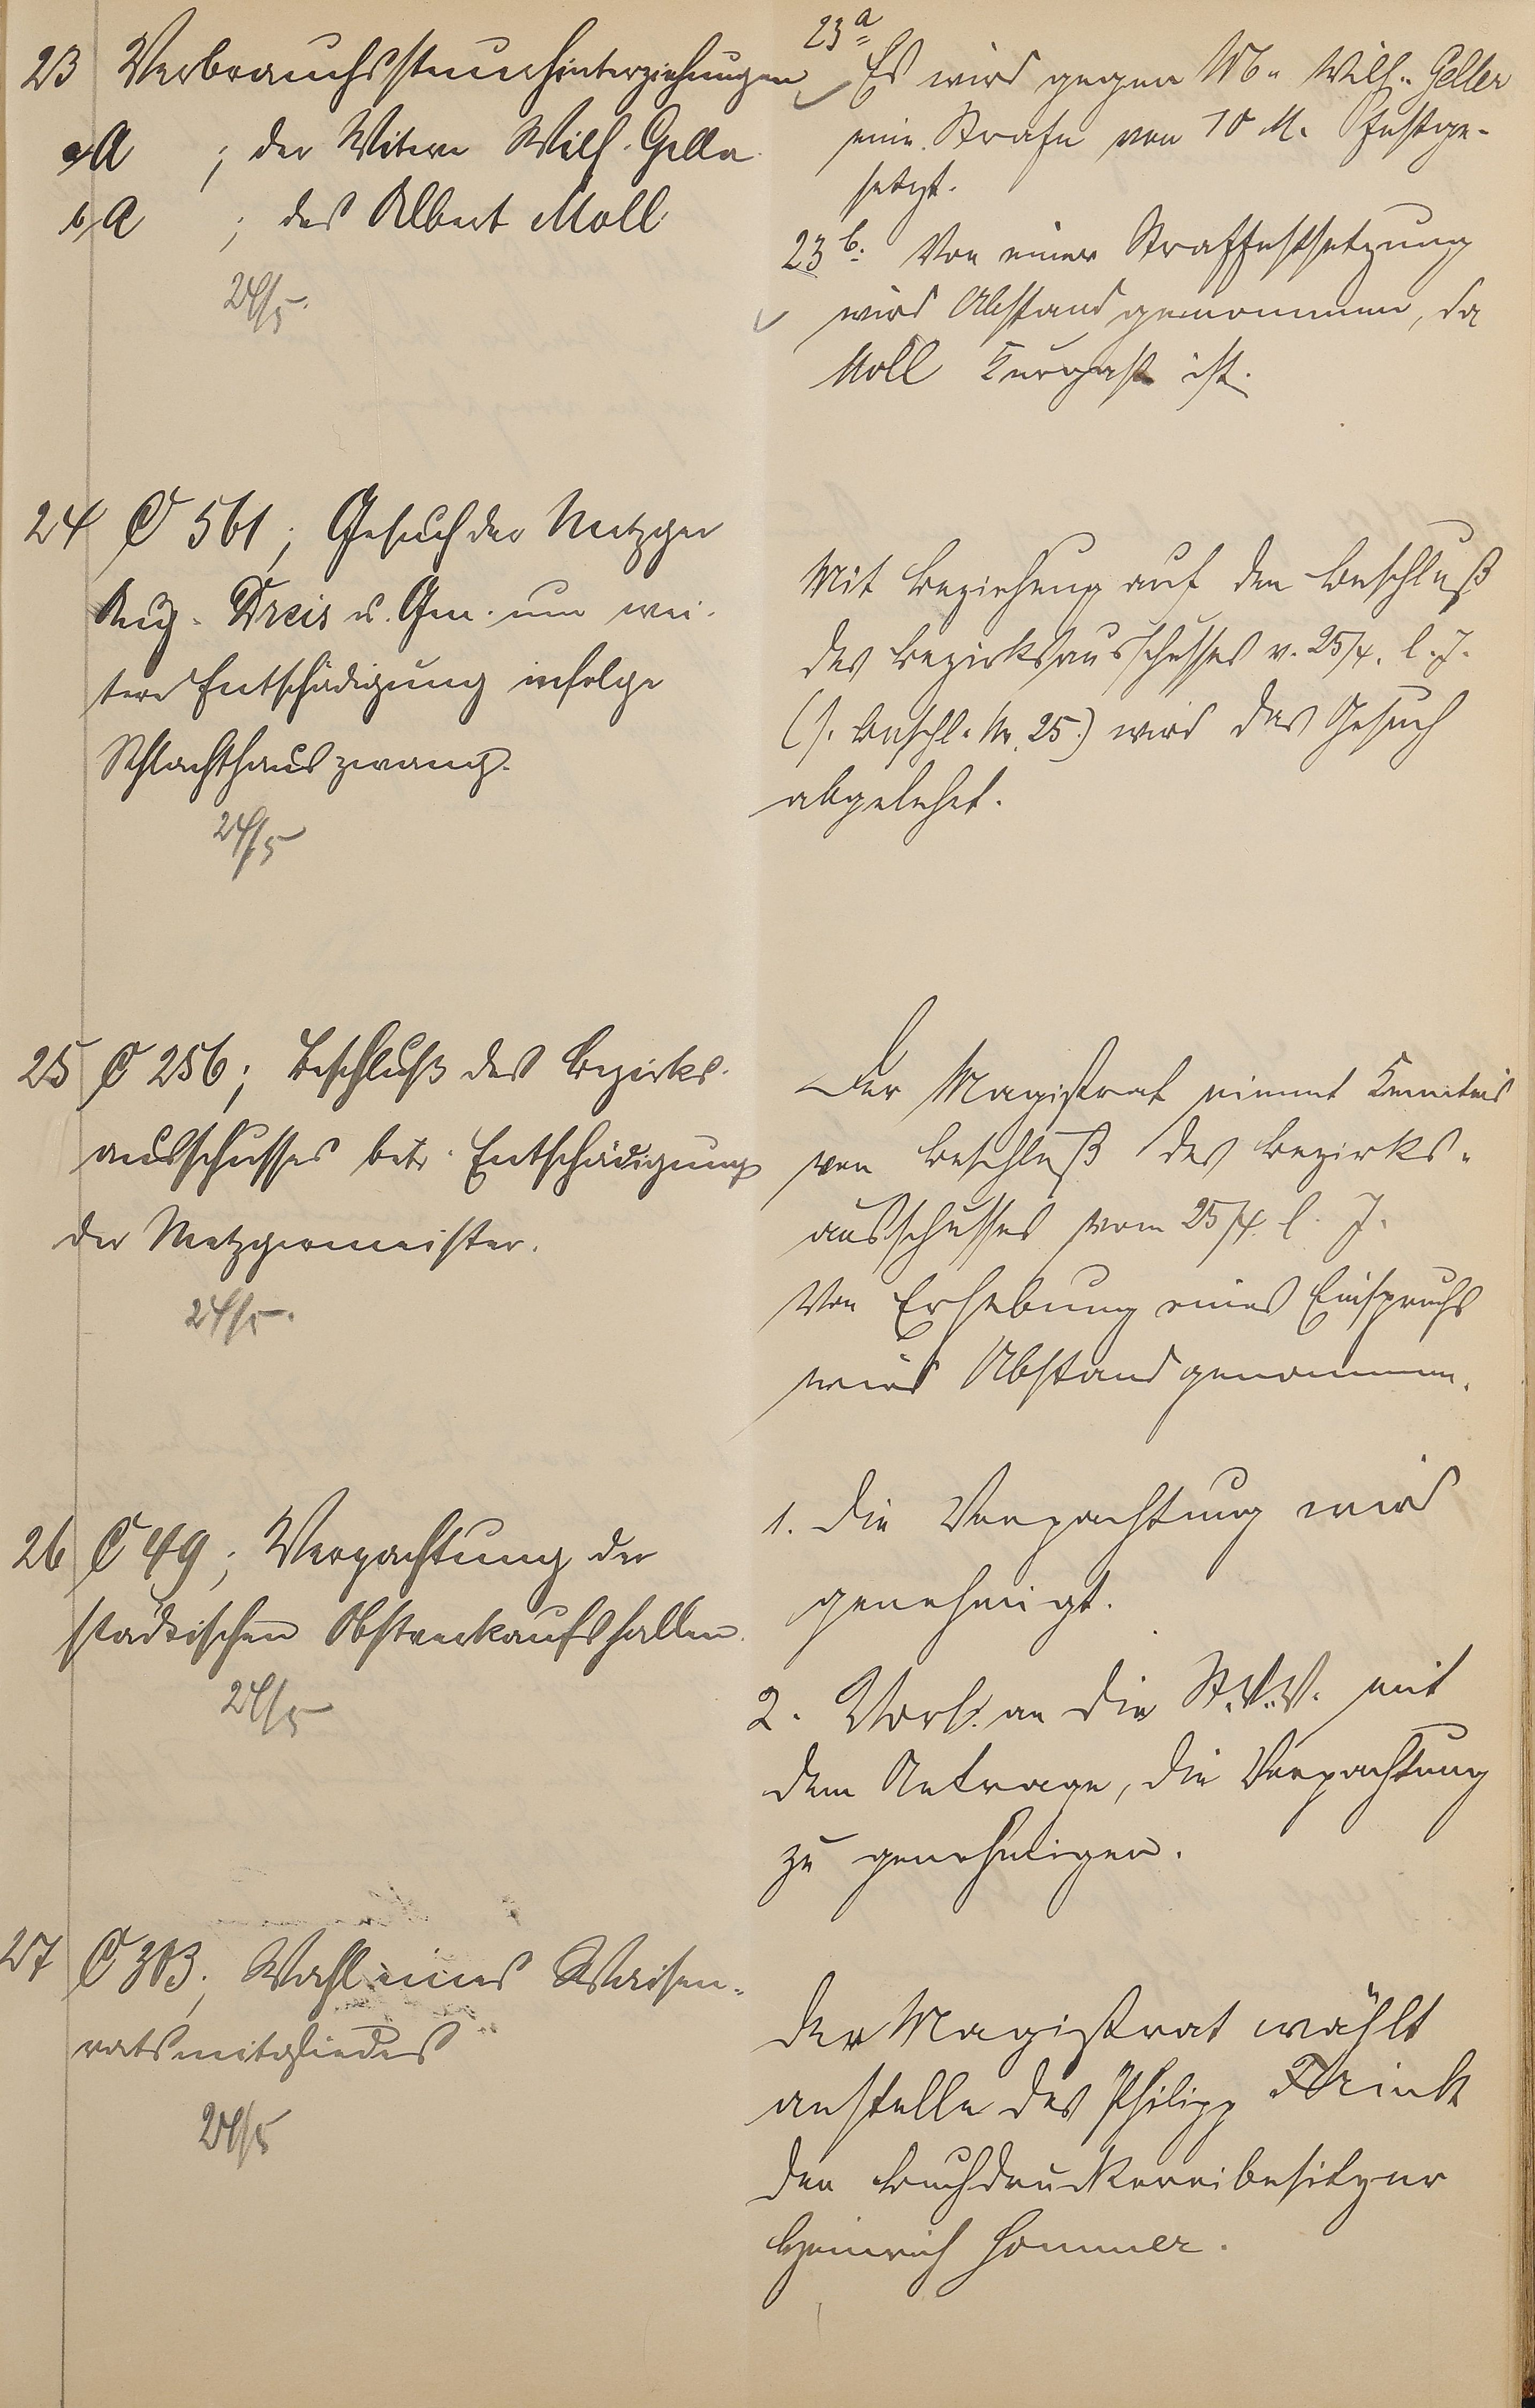 23 Verbrauchssteuerhinterziehungen
a, A ; der Witwe Wilh. Geller
b, A ; des Albert Moll
24/5.
23a Es wird gegen Ww. Wilh. Geller
eine Strafe von 10 M. festge-
setzt.
23b. Von einer Straffestsetzung
wird Abstand genommen, da
Moll Kurgast ist.
24 C 561; Gesuch der Metzger
Aug. Dreis u. Gen. um wei-
tere Entschädigung infolge
Schlachthauszwang.
24/5
Mit Beziehung auf den Beschluß
des Bezirksausschusses v. 25/4. l. J.
(s. Beschl. Nr. 25.) wird das Gesuch
abgelehnt.
25 C 256; Beschluß des Bezirks-
ausschusses betr. Entschädigung
der Metzgermeister.
24/5.
Der Magistrat nimmt Kenntnis
von Beschluß des Bezirks-
ausschusses vom 25/4. l. J.
Von Erhebung eines Einspruchs
wird Abstand genommen.
26 C 49; Verpachtung der
städtischen Obstverkaufshallen.
24/5
1. Die Verpachtung wird
genehmigt.
2. Vorl. an die St.V.V. mit
dem Antrage, die Verpachtung
zu genehmigen.
27 C 303; Wahl eines Waisen-
ratsmitgliedes
24/5
Der Magistrat wählt
anstelle des Philipp
den Buchdruckereibesitzer
Heinrich Hommer.